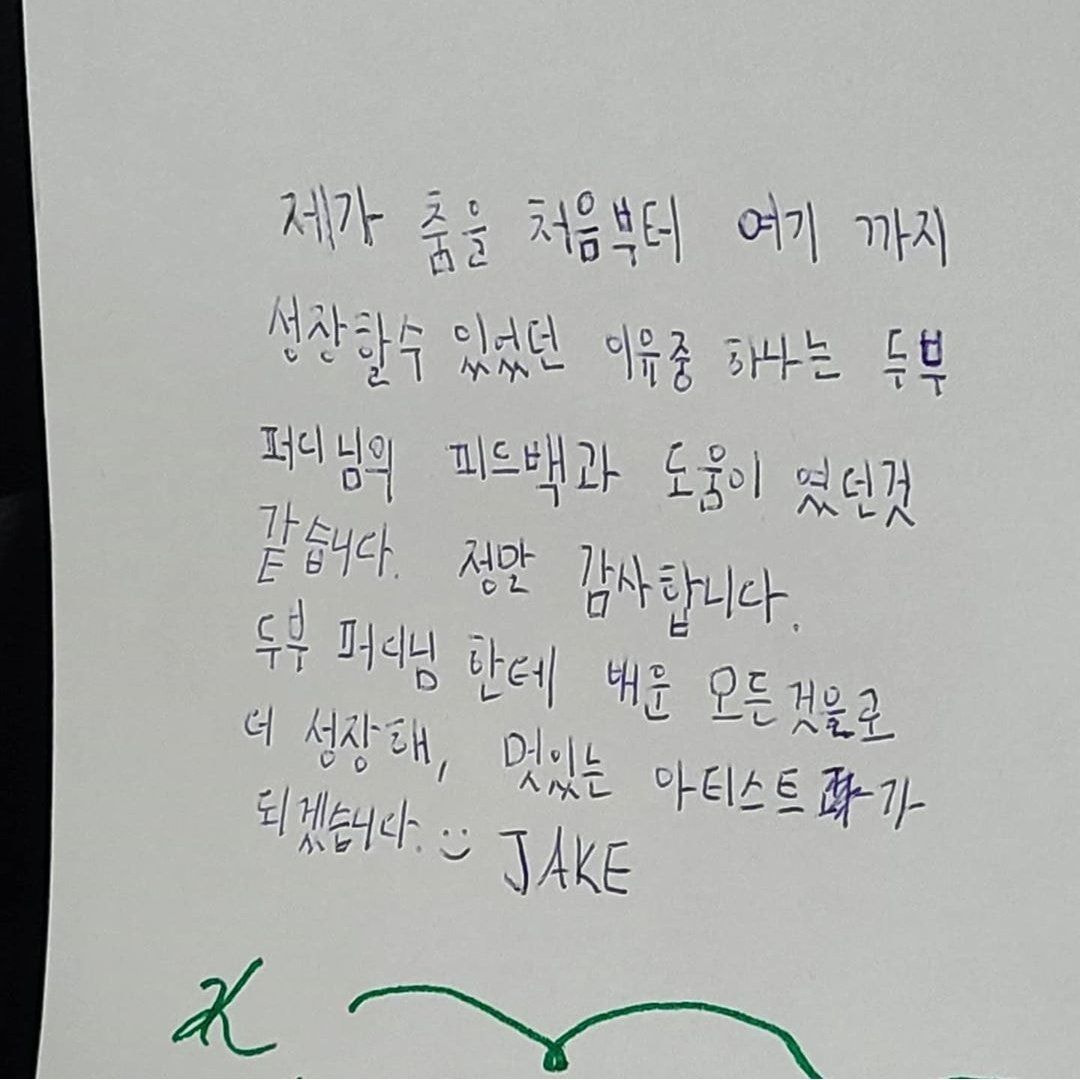 제가 춤을 처음부터 여기 까지
성장할수 있었던 이유중 하나는 두부
퍼디님의 피드백과 도움이 였던것
같습니다. 정말 감사합니다.
두부 퍼디님 한테 배운 모든것을로
더 성장해, 멋있는 아티스트 가
되겠습니다. :) JAKE